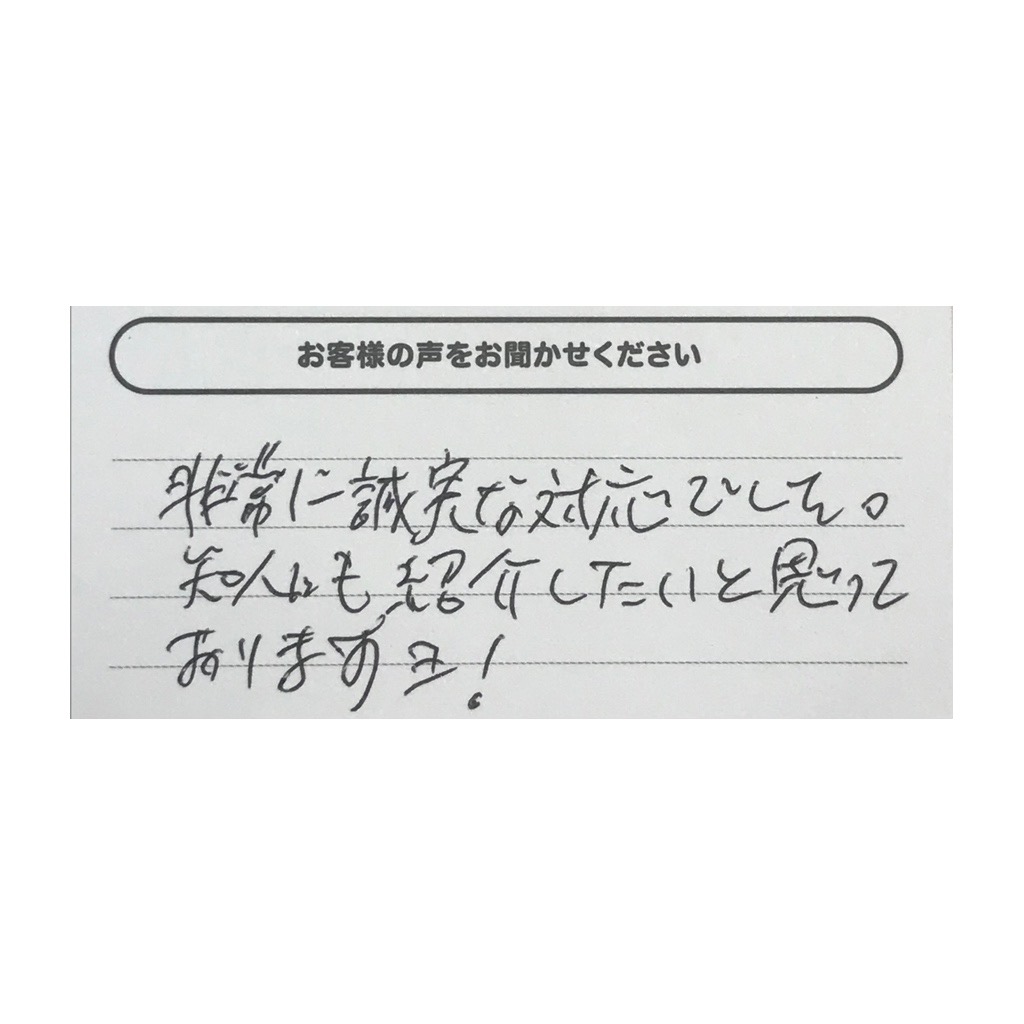 お客様の声をお聞かせください
非常に誠実な対応でした。
知人にも紹介したいと思って
おります!